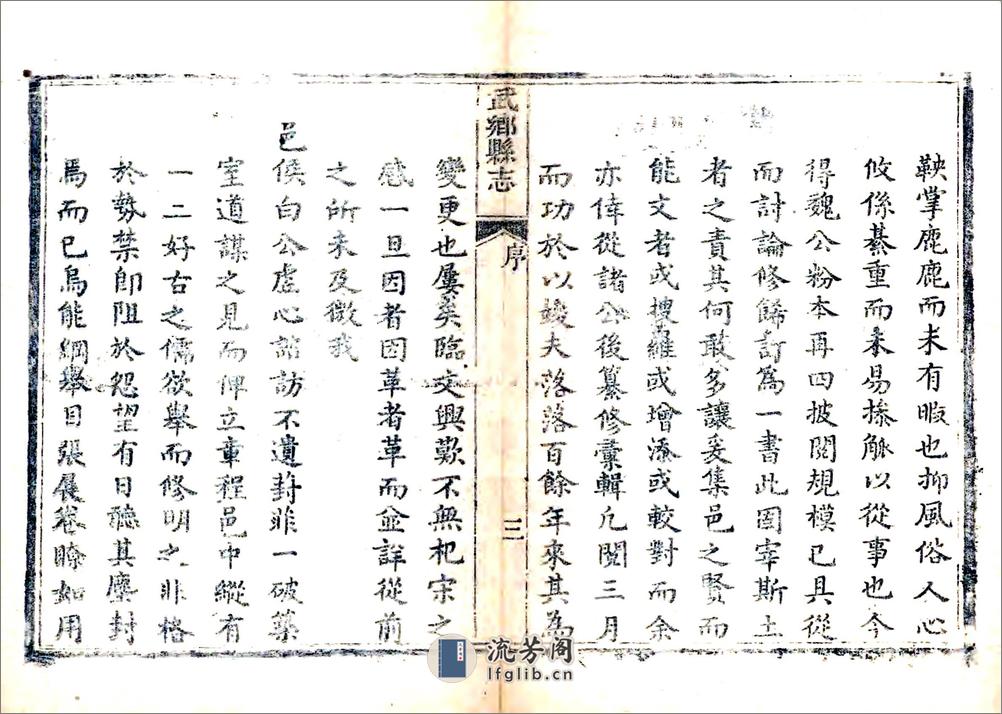 鞅掌鹿鹿而未有暇也抑風俗人心
攸係綦重而未易摻觚以從事也今
得魏公粉本再四披閱規模已具從
而討論修餙訂為一書此固宰斯土
者之責其何敢多讓爰集邑之賢而
能文者或搜羅或增添或較對而余
亦倖從諸公後纂修彙輯凡閱三月
而功於以竣夫落落百餘年來其為
武鄉縣志
序
三
變更也屢矣臨文興歎不無杞宋之
感一旦因者因革者革而並詳從前
之所未及微我
邑侯白公虛心諮訪不遺葑菲一破築
室道謀之見而俾立章程邑中縱有
一二好古之儒欲舉而修明之非格
於勢禁卽阻於怨望有日聽其塵封
焉而已烏能綱舉目張展卷瞭如用
流芳阁
lfglib.cn